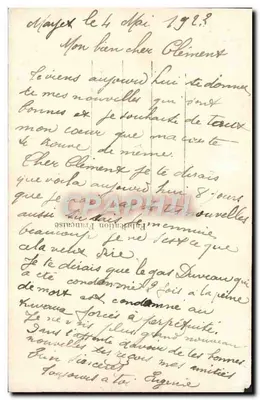 Mayet le 4 Mai 1923
Mon bien cher Clément
Je viens aujourd hui te donner
de mes nouvelles qui sont
bonnes et je souhaite de tout
mon cœur que ma carte
te trouve de même.
Cher Clément je te dirais
que voila aujourd hui 8 jours
que je n'ai nouvelles
aussi je m'ennuie
beaucoup je ne sais ce que
cela veux dire.
Je te dirais que le gas Duveau qui
a été condamné 2 fois a la peine
de mort est condamné au
travaux forcés à perpétuité.
Je ne vois plus grand nouveau
Dans l'attente d'avoir de tes bonnes
nouvelles reçois mes amitiés
Toujours à toi Eugenie
CPARAMA
Fabrication Française